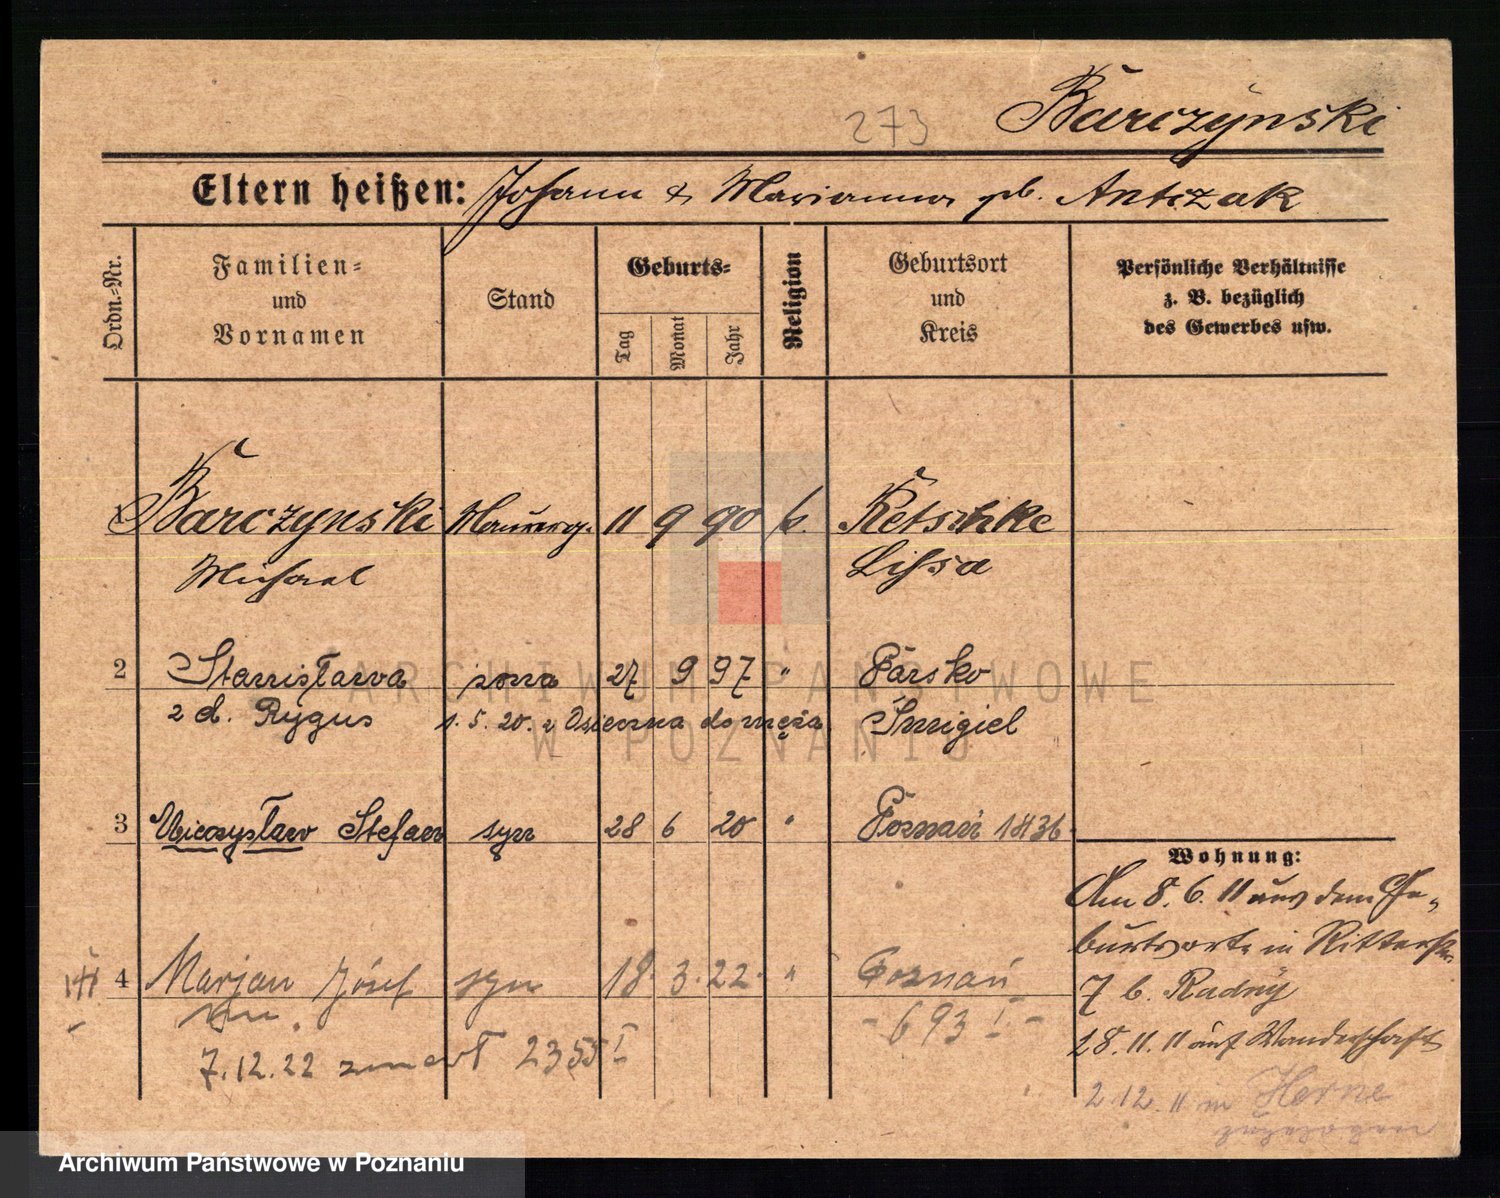 273
Barczynski
Eltern heißen: Johann & Marianna geb. Antczak
Ordn.-Nr.
Familien-
und
Vornamen
Stand
Geburts-
Tag
Monat
Jahr
Religion
Geburtsort
und
Kreis
Persönliche Verhältnisse
z. B. bezüglich
des Gewerbes usw.
1 Barczynski Maurerg. 11 9 90 k. Retschke
Michael Lissa
2 Stanisława żona 27 9 97 " Parsko
z d. Rygus 1. 5. 20. z Osieczna do męża Śmigiel
3 Mieczysław Stefan syn 28 6 20 " Poznań 1436
Wohnung:
Am 8. 6. 11 aus dem Ge-
burtsorte in Ritterstr.
4 Marjan Józef syn 18. 3. 22. " Poznań
7 b. Radny
- 693 I. -
28. 11. 11 auf Wanderschaft
7. 12. 22 zmarł 2355 I
2 12. 11 in Herne
ARCHIWUM PAŃSTWOWE
W POZNANIU
Archiwum Państwowe w Poznaniu